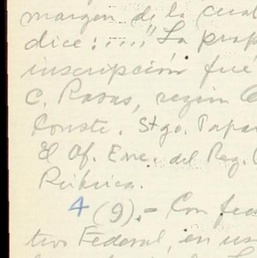 margen de la cual
dice:...." La prop
inscripción fué
C. Rosas, según
Conste. Stgo. Papas
El Of. Enc. del Reg.
Rúbrica.
4 (9).- Con fec
tivo Federal, en us